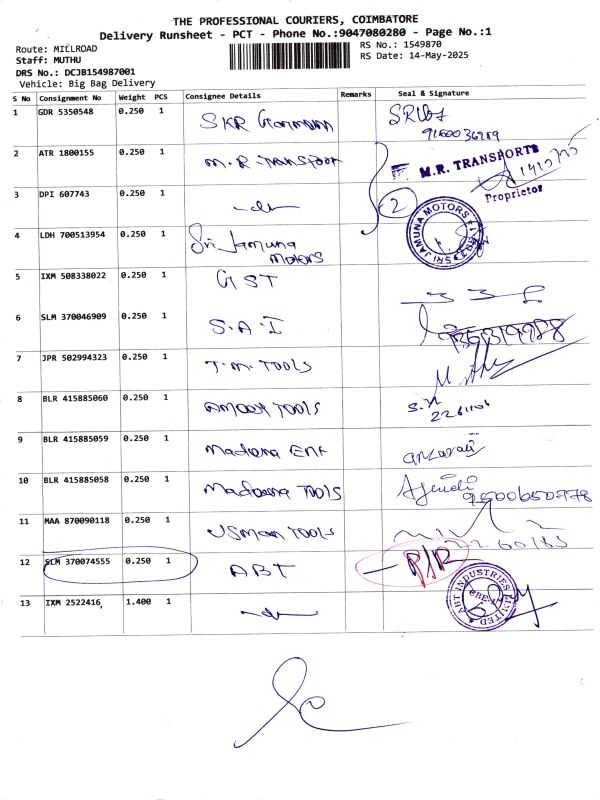 THE PROFESSIONAL COURIERS, COIMBATORE
Delivery Runsheet - PCT - Phone No.:9047080280 - Page No.:1
Route: MILLROAD
RS No.: 1549870
Staff: MUTHU
RS Date: 14-May-2025
DRS No.: DCJB154987001
Vehicle: Big Bag Delivery
S No Consignment No Weight PCS Consignee Details Remarks Seal & Signature
1 GDR 5350548 0.250 1 SKR
2 ATR 1800155 0.250 1 M.R. Transport M.R. TRANSPORTS
Proprietor
3 DPI 607743 0.250 1 -do- 2
4 LDH 700513954 0.250 1 Sri Jamuna Motors SRI JAMUNA MOTORS
5 IXM 508338022 0.250 1 GST
6 SLM 370046909 0.250 1 S.A.I
7 JPR 502994323 0.250 1 T.M. TOOLS
8 BLR 415885060 0.250 1 TOOLS
9 BLR 415885059 0.250 1 Madeena Ent
10 BLR 415885058 0.250 1 Madeena TOOLS
11 MAA 870090118 0.250 1 USMAN TOOLS
12 SLM 370074555 0.250 1 ABT P/R
13 IXM 2522416 1.400 1 -do- ABT INDUSTRIES LIMITED CBE